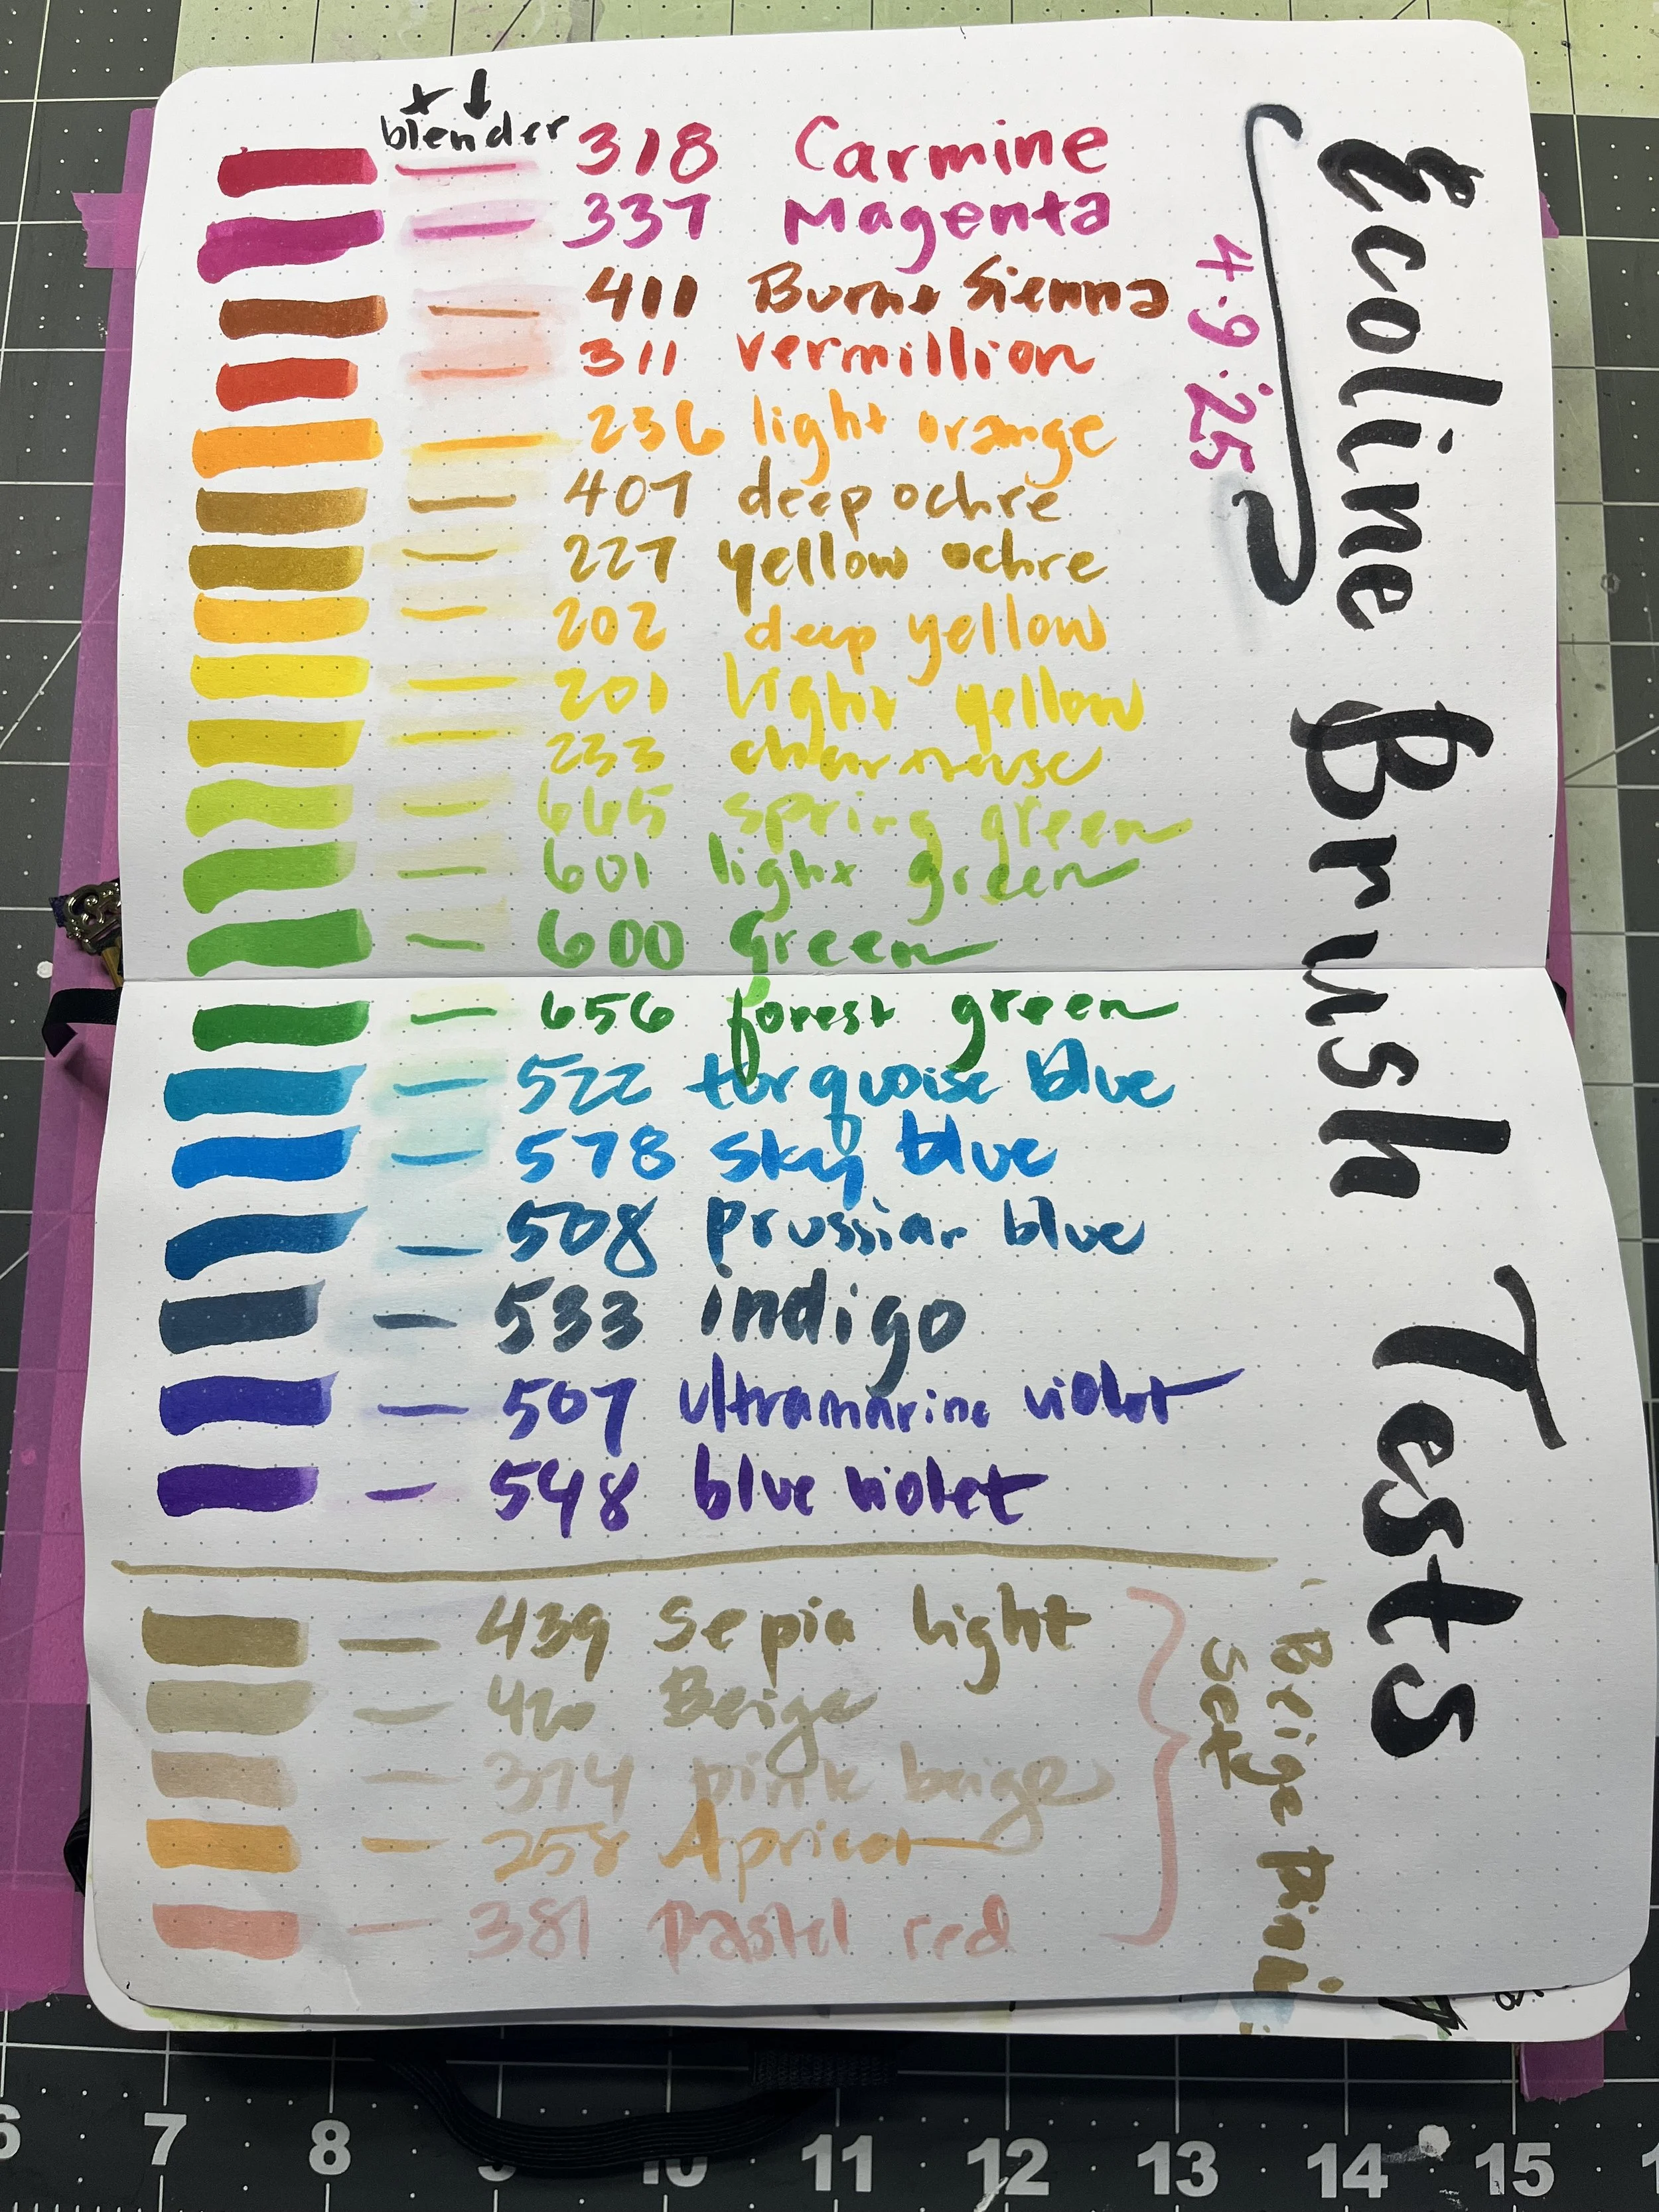 + ↓
blender
318 Carmine
337 Magenta
411 Burnt Sienna
311 vermillion
236 light orange
407 deep ochre
227 yellow ochre
202 deep yellow
201 light yellow
233 chartreuse
665 spring green
601 light green
600 Green
656 forest green
522 turquoise blue
578 sky blue
508 prussian blue
533 indigo
507 ultramarine violet
548 blue violet
439 Sepia light
420 Beige
374 pink beige
258 Apricot
381 Pastel red
Ecoline Brush Tests
4.9.25
Beige pink
set
6 7 8 9 10 11 12 13 14 15